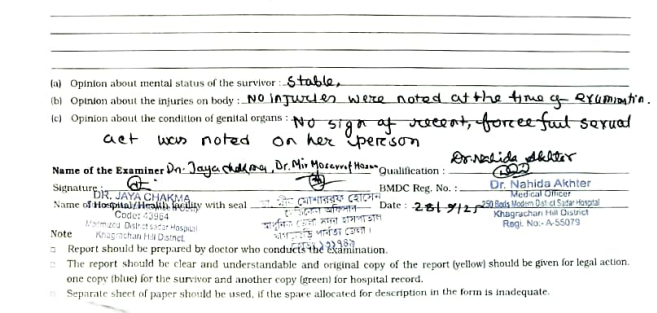 (a) Opinion about mental status of the survivor : Stable,
(b) Opinion about the injuries on body : No injuries were noted at the time of examination.
(c) Opinion about the condition of genital organs : No sign of recent, forceful sexual
act was noted on her person
Dr. Nahida Akhter
Name of the Examiner Dr. Jaya chakma, Dr. Mir Mosarrof Hosen Qualification :
Signature : BMDC Reg. No. : Dr. Nahida Akhter
DR. JAYA CHAKMA Medical Officer
Name of Hospital/Health facility with seal মোশাররফ হোসেন Date : 28/9/25 250 Beds Modern District Sadar Hospital
Code: 43984 Khagrachari Hill District
District sadar Hospital আধুনিক জেলা সদর হাসপাতাল Regi. No:- A-55079
Khagrachari Hill District. পার্বত্য জেলা।
Note
Report should be prepared by doctor who conducts the examination.
The report should be clear and understandable and original copy of the report (yellow) should be given for legal action.
one copy (blue) for the survivor and another copy (green) for hospital record.
Separate sheet of paper should be used, if the space allocated for description in the form is inadequate.